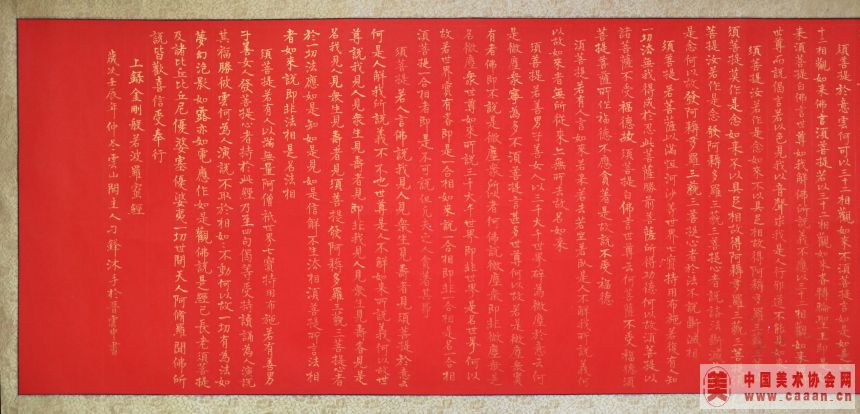 須菩提言如是如是以三
十二相觀如來佛言須菩提若以三十二相觀如來者轉輪聖王即
來須菩提白佛言世尊如我解佛所說義不應以三十二相觀如來
世尊而說偈言若以色見我以音聲求我是人行邪道不能見如
須菩提汝若作是念如來不以具足相故得阿耨多羅三藐三菩
須菩提莫作是念如來不以具足相故得阿耨多羅三藐三菩
菩提汝若作是念發阿耨多羅三藐三菩提心者說諸法斷
是念何以故發阿耨多羅三藐三菩提心者於法不說斷滅相
須菩提若菩薩以滿恒河沙等世界七寶持用布施若復有人知
一切法無我得成於忍此菩薩勝前菩薩所得功德何以故須菩提以
諸菩薩不受福德故須菩提白佛言世尊云何菩薩不受福德須
菩提菩薩所作福德不應貪著是故說不受福德
須菩提若有人言如來若來若去若坐若臥是人不解我所說義何
以故如來者無所從來亦無所去故名如來
須菩提若善男子善女人以三千大千世界碎為微塵於意云何
是微塵眾寧為多不須菩提言甚多世尊何以故若是微塵眾實
有者佛即不說是微塵眾所以者何佛說微塵眾即非微塵眾是
名微塵眾世尊如來所說三千大千世界即非世界是名世界何以
故若世界實有者即是一合相如來說一合相即非一合相是名一合相
須菩提一合相者即是不可說但凡夫之人貪著其事
須菩提若人言佛說我見人見眾生見壽者見須菩提於意云
何是人解我所說義不不也世尊是人不解如來所說義何以故世
尊說我見人見眾生見壽者見即非我見人見眾生見壽者見是
名我見人見眾生見壽者見須菩提發阿耨多羅三藐三菩提心者
於一切法應如是知如是見如是信解不生法相須菩提所言法相
者如來說即非法相是名法相
須菩提若有人以滿無量阿僧祇世界七寶持用布施若有善男
子善女人發菩提心者持於此經乃至四句偈等受持讀誦為人演說
其福勝彼云何為人演說不取於相如如不動何以故一切有為法如
夢幻泡影如露亦如電應作如是觀佛說是經已長老須菩提
及諸比丘比丘尼優婆塞優婆夷一切世間天人阿修羅聞佛所
說皆歡喜信受奉行
上錄金剛般若波羅蜜經
歲次壬辰年仲冬雲山閣主人刁鋒沐手於書
中国美术协会网
www.caaan.cn